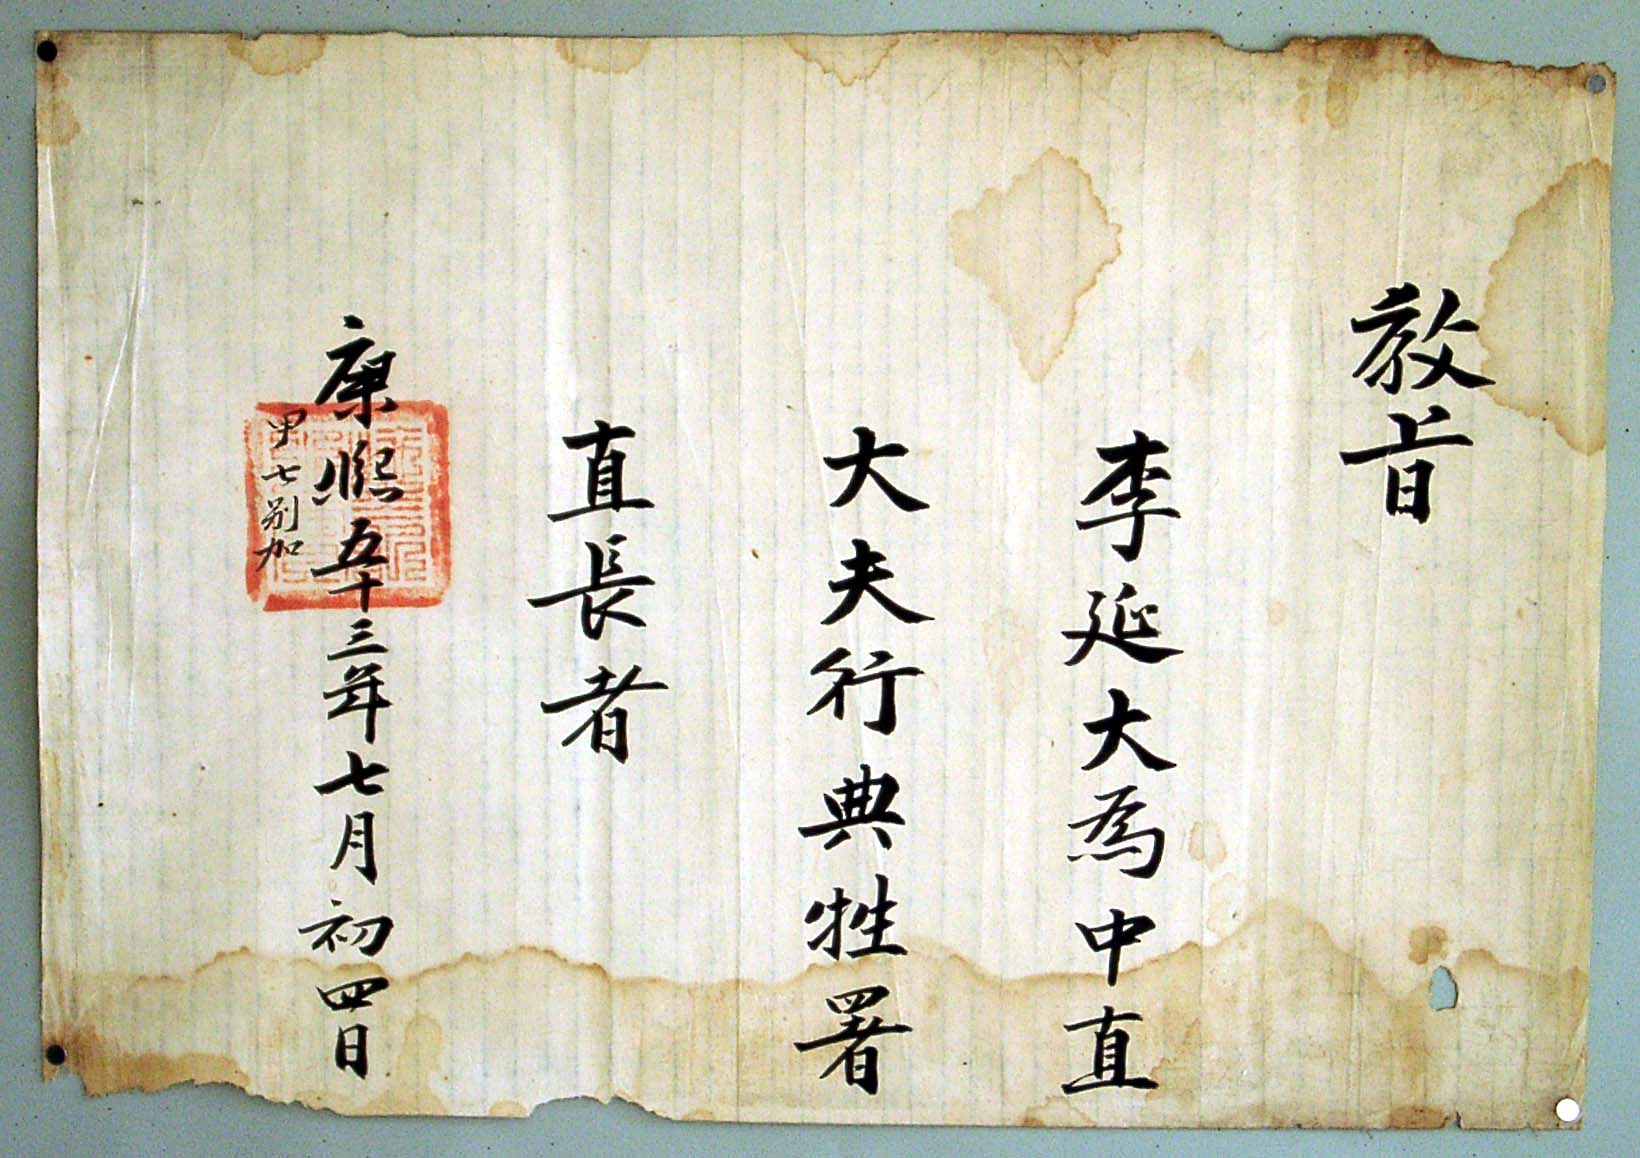 敎旨
李延大爲中直
大夫行典牲署
直長者
康熙五十三年七月初四日
甲七別加